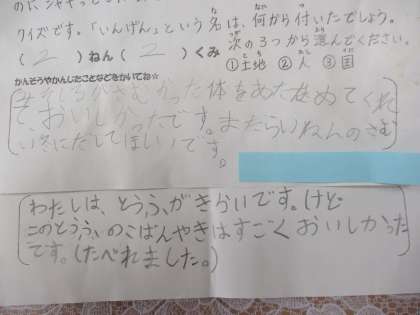 クイズです。「いんげん」という名は、何から付いたでしょう。
次の3つから選んでください。
( 2 )ねん( 2 )くみ ①土地 ②人 ③国
かんそうやかんじたことなどをかいてね☆
さむかった体をあたためてくれ
て、おいしかったです。またらいねんのさむ
い冬にだしてほしいです。
わたしは、とうふがきらいです。けど
このとうふのこばんやきはすごくおいしかった
です。(たべれました。)